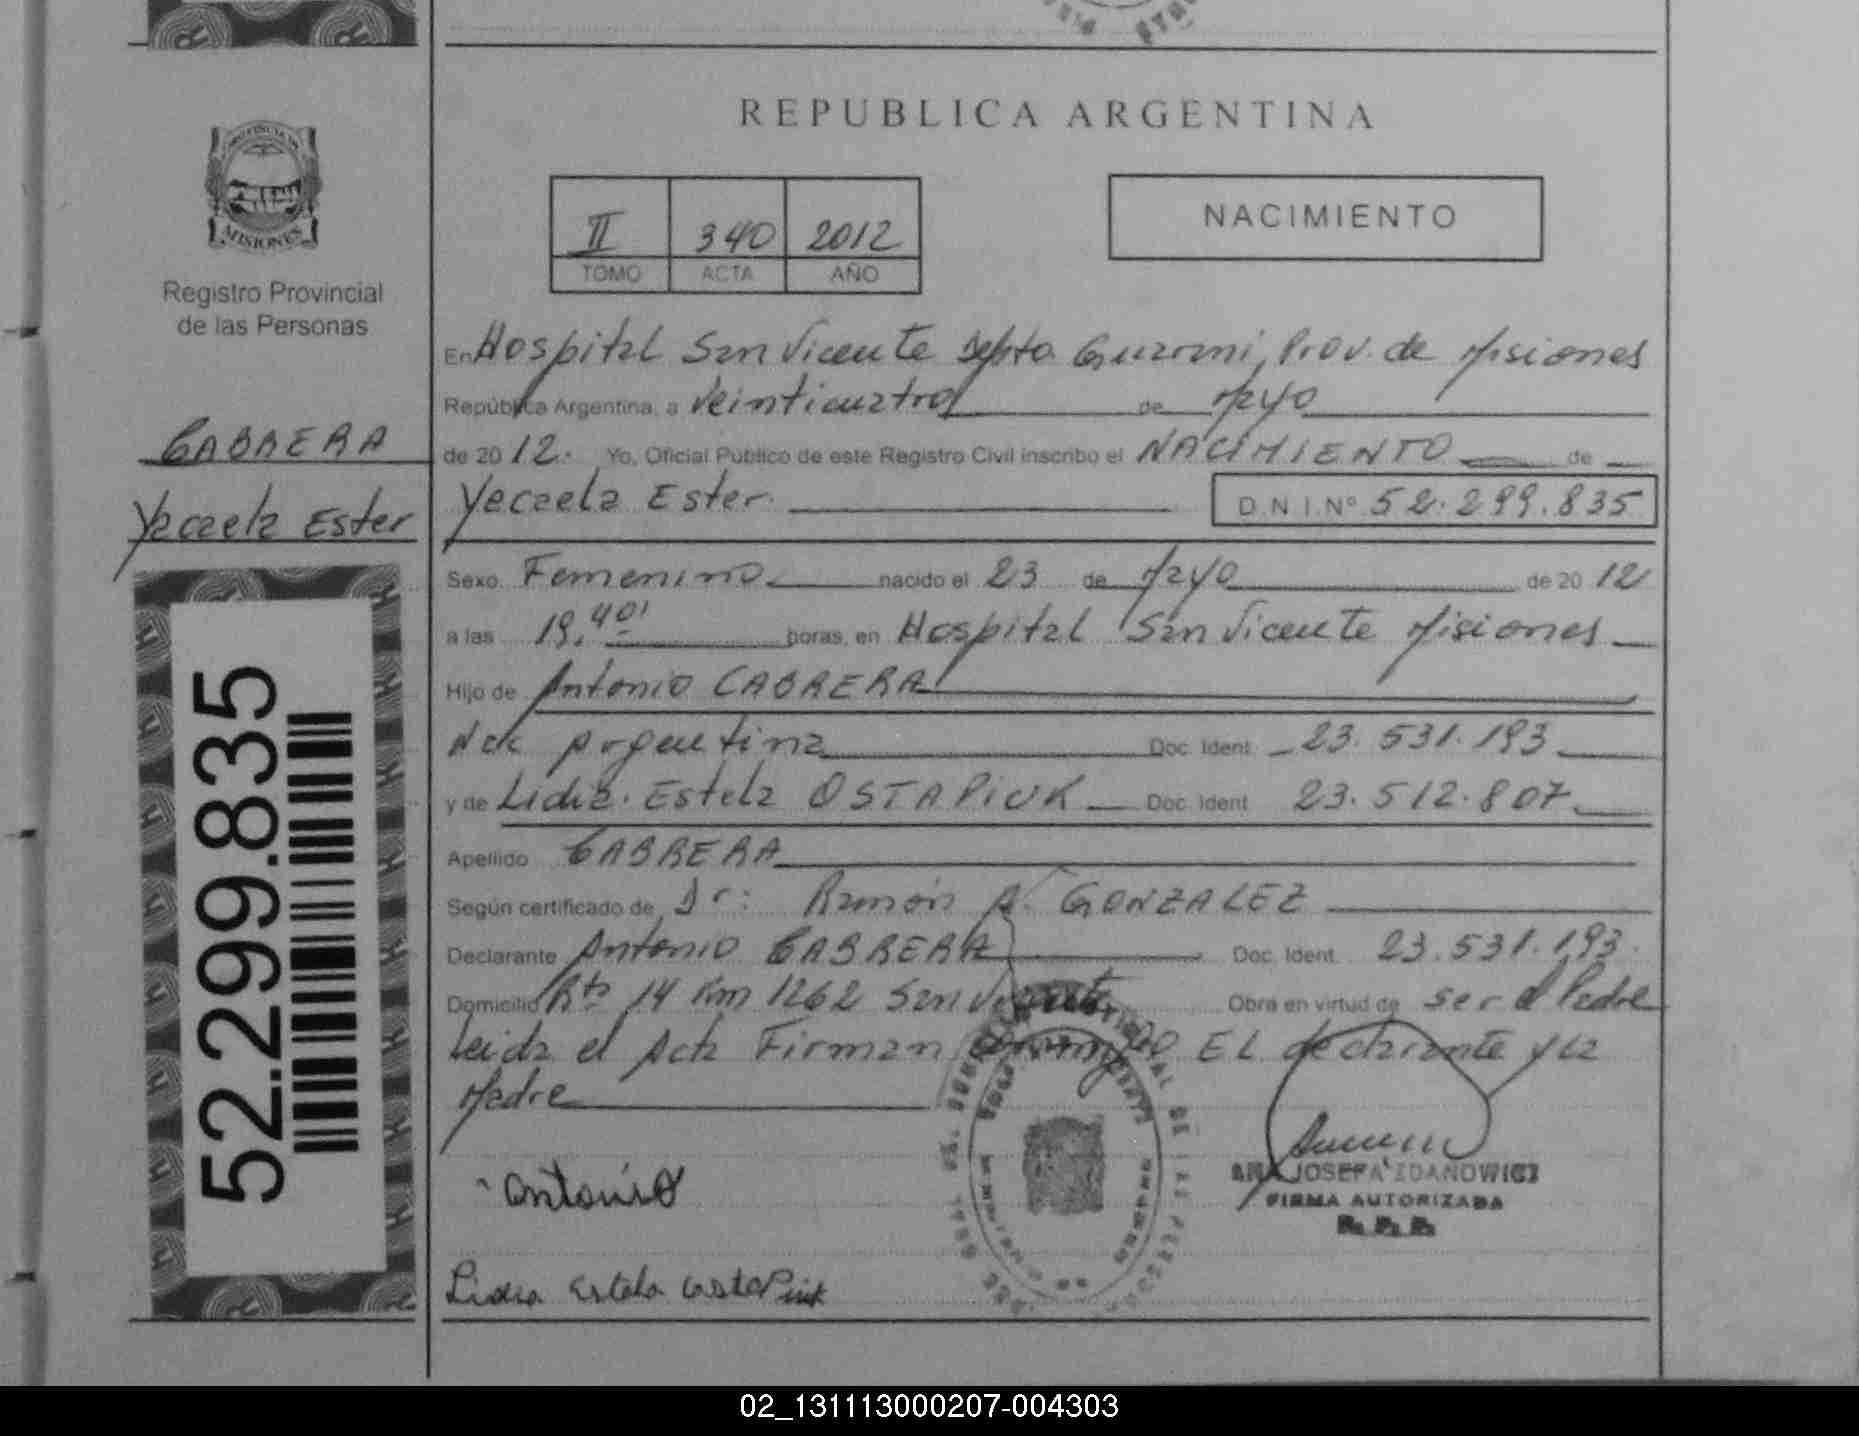 REPUBLICA ARGENTINA
PROVINCIA DE
MISIONES
Registro Provincial
de las Personas
CABRERA
Yacaela Ester
52.299.835
II 340 2012
TOMO ACTA AÑO
NACIMIENTO
En Hospital San Vicente Depto Guarani, Prov. de Misiones
República Argentina, a Veinticuatro de Mayo
de 2012. Yo, Oficial Público de este Registro Civil inscribo el NACIMIENTO de
Yacaela Ester. D.N.I.Nº 52.299.835
Sexo Femenino nacido el 23 de Mayo de 2012
a las 19,40' horas, en Hospital San Vicente Misiones
Hijo de Antonio CABRERA
Nac Argentina Doc. Ident. 23.531.193
y de Lidia. Estela OSTAPIUK Doc. Ident. 23.512.807
Apellido CABRERA
Según certificado de Dr: Ramón A. GONZALEZ
Declarante Antonio CABRERA Doc. Ident. 23.531.193.
Domicilio Rta 14 Km 1262 San Vicente Obra en virtud de ser el Padre
Leida el Acta Firman conmigo EL declarante y la
Madre
Antonio
ANA JOSEFA ZDANOWICZ
FIRMA AUTORIZADA
R. P. P.
Lidia Estela
02_131113000207-004303